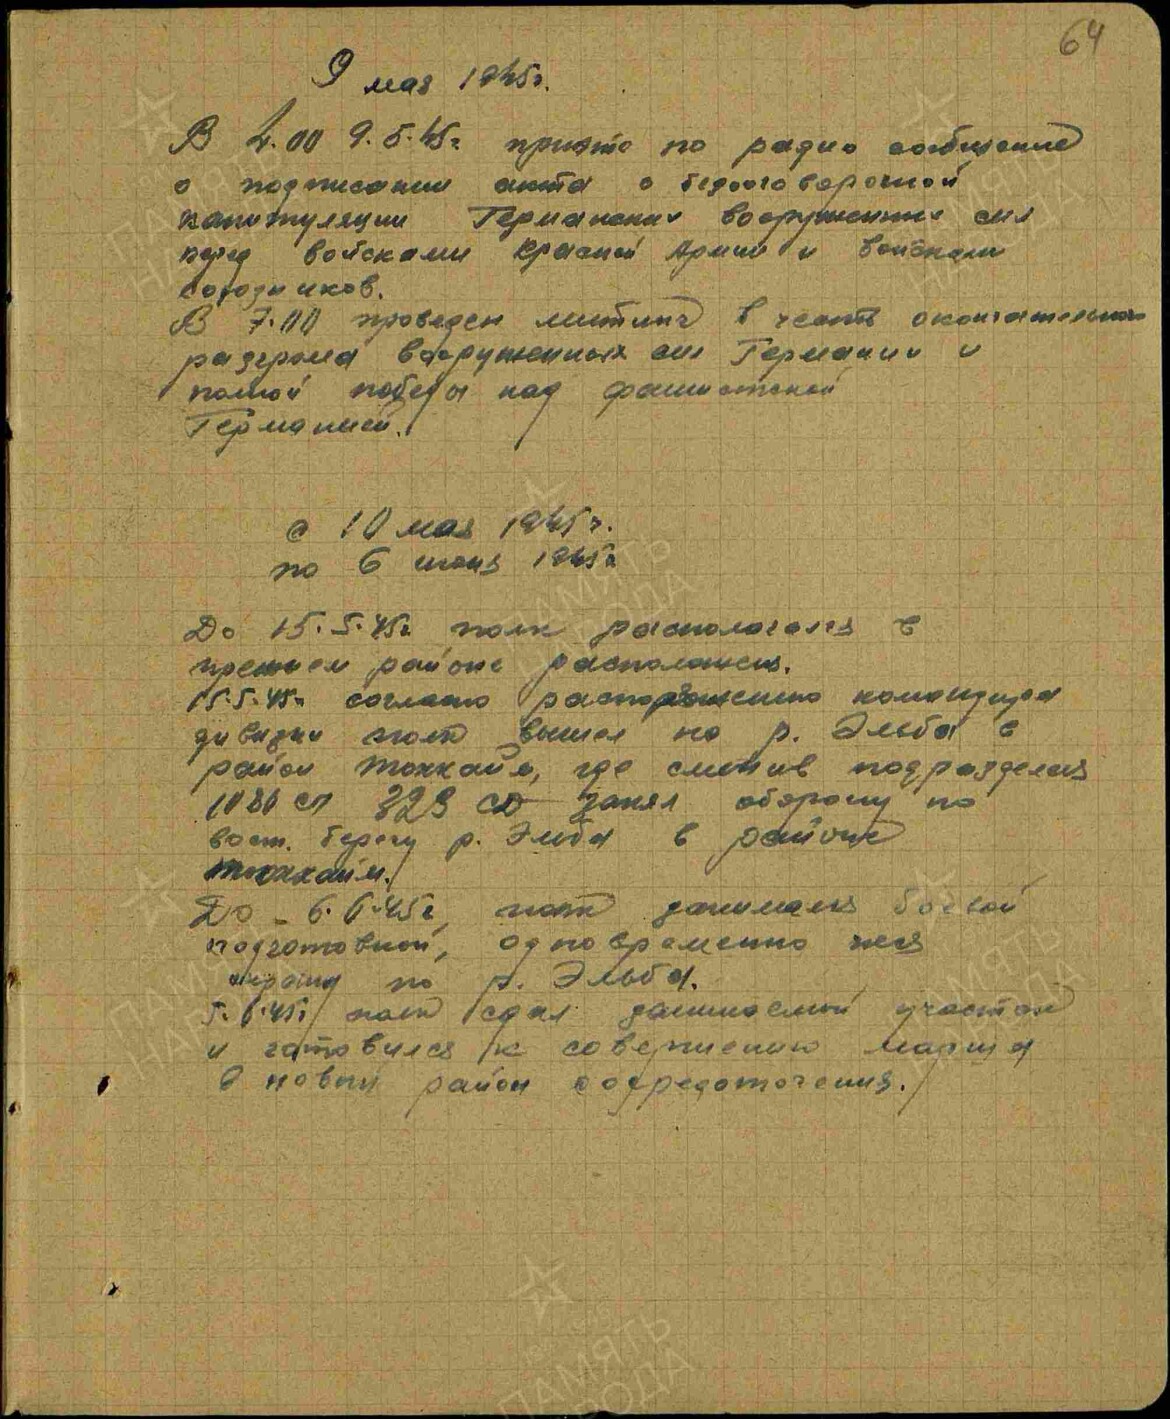 64
9 мая 1945г.
В 4.00 9.5.45г принято по радио сообщение
о подписании акта о безоговорочной
капитуляции Германских вооруженных сил
перед войсками Красной Армии и войсками
союзников.
В 7.00 проведен митинг в честь окончательного
разгрома вооруженных сил Германии и
полной победы над фашистской
Германией.
с 10 мая 1945г.
по 6 июня 1945г
До 15.5.45г полк располагался в
прежнем районе расположен.
15.5.45г согласно распоряжению командира
дивизии полк вышел на р. Эльба в
район где сменив подразделен
СП 329 СД занял оборону по
вост. берегу р. Эльба в районе
До - 6.6.45г, полк занимался боевой
подготовкой, одновременно неся
охрану по р. Эльба.
5.6.45г полк сдал занимаемый участок
и готовился к совершению марша
в новый район сосредоточения.
ПАМЯТЬ
НАРОДА
ПАМЯТЬ
НАРОДА
ПАМЯТЬ
НАРОДА
ПАМЯТЬ
НАРОДА
ПАМЯТЬ
НАРОДА
ПАМЯТЬ
НАРОДА